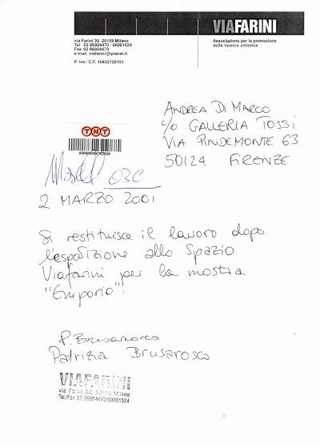 VIAFARINI
via Farini 35 20159 Milano
Tel 02 66804473 - 69001524
Fax 02 66804473
e-mail viafarini@planet.it
P. Iva / C.F. 10432120151
Associazione per la promozione
della ricerca artistica
ANDREA DI MARCO
c/o GALLERIA TOSSI
VIA PINDEMONTE 63
50124 FIRENZE
TNT
03C
2 MARZO 2001
Si restituisce il lavoro dopo
l'esposizione allo Spazio
Viafarini per la mostra
"Emporio".
P. Brusarosco
Patrizia Brusarosco
VIAFARINI
via Farini 35, 20159 Milano
Tel/Fax 02 66804473/69001524